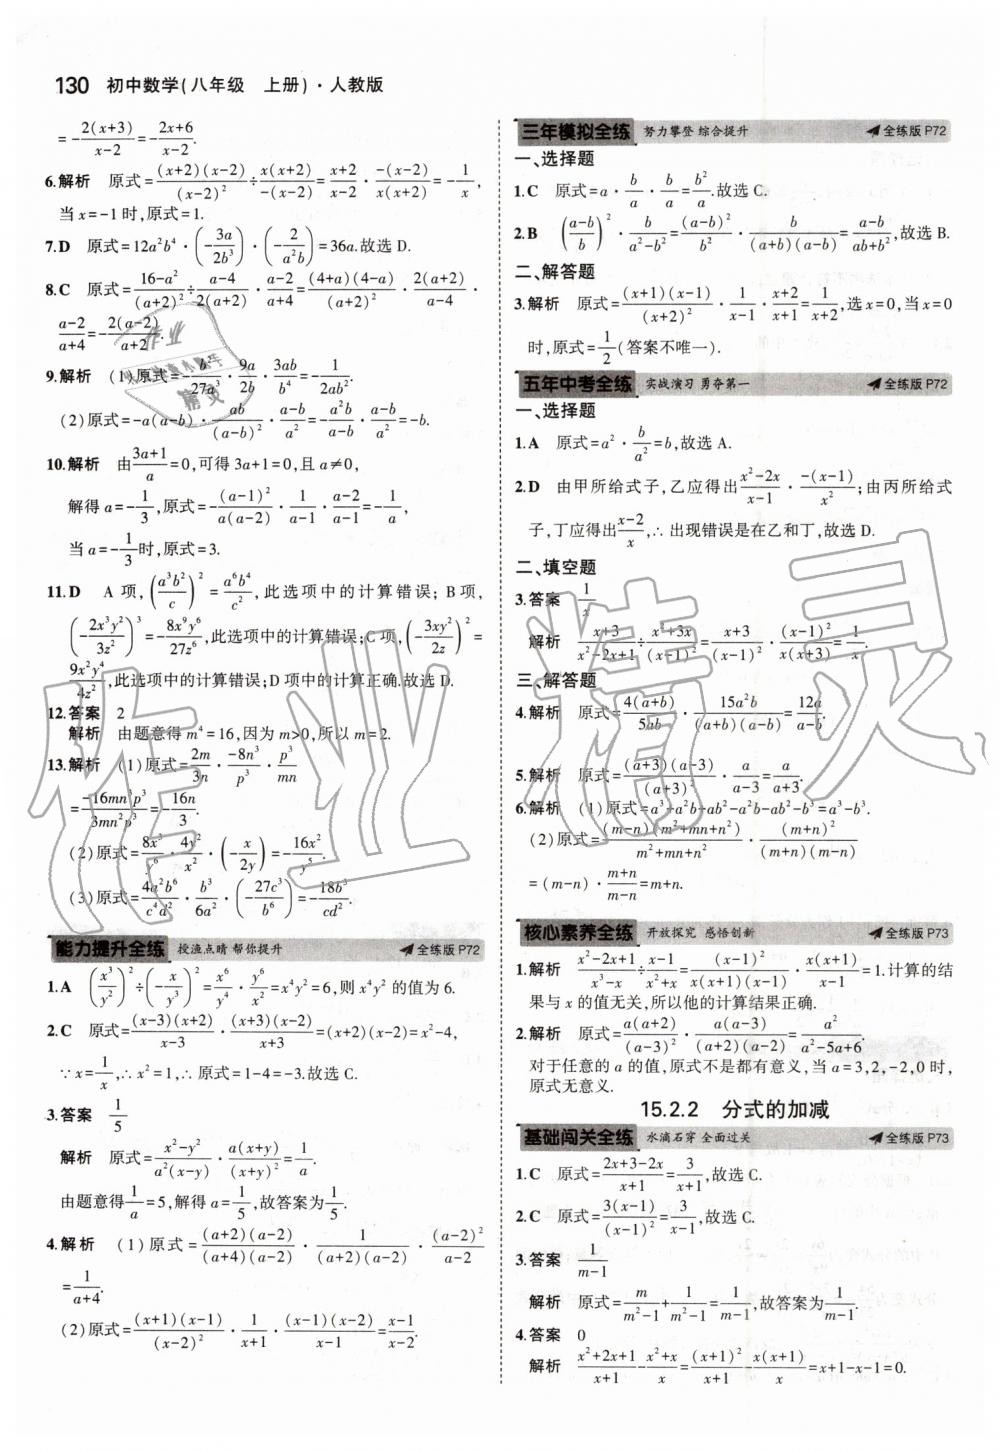 130 初中数学(八年级 上册)·人教版
=-2(x+3)/(x-2)=-(2x+6)/(x-2).
6.解析 原式=(x+2)(x-2)/(x-2)²÷x(x+2)/-(x-2)=(x+2)/(x-2)·-(x-2)/x(x+2)=-1/x,
当x=-1时,原式=1.
7.D 原式=12a²b⁴·(-3a/2b³)·(-2/a²b)=36a.故选D.
8.C 原式=(16-a²)/(a+2)²÷(a-4)/2(a+2)·(a-2)/(a+4)=(4+a)(4-a)/(a+2)²·2(a+2)/(a-4)·
(a-2)/(a+4)=-2(a-2)/(a+2).
9.解析 (1)原式=-b/27a³·9a/2b·3ab/b⁴=-1/2ab².
(2)原式=-a(a-b)·ab/(a-b)²·(a-b)/a²=-a²b/(a-b)·(a-b)/a²=-b.
10.解析 由(3a+1)/a=0,可得3a+1=0,且a≠0,
解得a=-1/3,原式=(a-1)²/a(a-2)·1/(a-1)·(a-2)/(a-1)=1/a,
当a=-1/3时,原式=3.
11.D A项,(a³b²/c)²=a⁶b⁴/c²,此选项中的计算错误;B项,
(-2x³y²/3z²)³=-8x⁹y⁶/27z⁶,此选项中的计算错误;C项,(-3xy²/2z)²=
9x²y⁴/4z²,此选项中的计算错误;D项中的计算正确.故选D.
12.答案 2
解析 由题意得m⁴=16,因为m>0,所以m=2.
13.解析 (1)原式=2m/3n·-8n³/p³·p³/mn
=-16mn³p³/3mn²p³=-16n/3.
(2)原式=8x³/y⁶·4y²/x²·(-x/2y)=-16x²/y⁵.
(3)原式=4a²b⁶/c⁴d²·b³/6a²·(-27c³/b⁶)=-18b³/cd².
能力提升全练 授渔点睛 帮你提升 全练版 P72
1.A (x³/y²)²÷(-x/y³)²=x⁶/y⁴·y⁶/x²=x⁴y²=6,则x⁴y²的值为6.
2.C 原式=(x-3)(x+2)/(x-3)·(x+3)(x-2)/(x+3)=(x+2)(x-2)=x²-4,
∵x=1/x,∴x²=1,∴原式=1-4=-3.故选C.
3.答案 1/5
解析 (x²-y²)/a²(x-y)·a(x+y)/(x+y)²=1/a.
由题意得1/a=5,解得a=1/5,故答案为1/5.
4.解析 (1)原式=(a+2)(a-2)/(a+4)(a-2)·1/(a+2)(a-2)·(a-2)²/(a-2)
=1/(a+4).
(2)原式=(x+1)(x-1)/(x-2)²·1/(x+1)·(x-1)(x-2)/(x-1)=(x-1)/(x-2).
三年模拟全练 努力攀登 综合提升 全练版 P72
一、选择题
1.C 原式=a·b/a·b/a=b²/a.故选C.
2.B ((a-b)/b)²·b/(a²-b²)=(a-b)²/b²·b/(a+b)(a-b)=(a-b)/(ab+b²),故选B.
二、解答题
3.解析 原式=(x+1)(x-1)/(x+2)²·1/(x-1)·(x+2)/(x+1)=1/(x+2),选x=0,当x=0
时,原式=1/2(答案不唯一).
五年中考全练 实战演习 勇夺第一 全练版 P72
一、选择题
1.A 原式=a²·b/a²=b,故选A.
2.D 由甲所给式子,乙应得出(x²-2x)/(x-1)·-(x-1)/x²;由丙所给式
子,丁应得出-(x-2)/x,∴出现错误是在乙和丁,故选D.
二、填空题
3.答案 1/x
解析 (x+3)/(x²-2x+1)÷(x²+3x)/(x-1)²=(x+3)/(x-1)²·(x-1)²/x(x+3)=1/x.
三、解答题
4.解析 原式=4(a+b)/5ab·15a²b/(a+b)(a-b)=12a/(a-b).
5.解析 原式=(a+3)(a-3)/(a+3)²·a/(a-3)=a/(a+3).
6.解析 (1)原式=a³+a²b+ab²-a²b-ab²-b³=a³-b³.
(2)原式=(m-n)(m²+mn+n²)/(m²+mn+n²)·(m+n)²/(m+n)(m-n)
=(m-n)·(m+n)/(m-n)=m+n.
核心素养全练 开放探究 感悟创新 全练版 P73
1.解析 (x²-2x+1)/(x³-x)÷(x-1)/(x²+x)=(x-1)²/x(x+1)(x-1)·x(x+1)/(x-1)=1.计算的结
果与x的值无关,所以他的计算结果正确.
2.解析 原式=a(a+2)/(a-3)²·a(a-3)/(a+2)(a-2)=a²/(a²-5a+6).
对于任意的a的值,原式不是都有意义,当a=3,2,-2,0时,
原式无意义.
15.2.2 分式的加减
基础闯关全练 水滴石穿 全面过关 全练版 P73
1.C 原式=(2x+3-2x)/(x+1)=3/(x+1),故选C.
2.C 原式=3(x-1)/(x-1)²=3/(x-1),故选C.
3.答案 1/(m-1)
解析 原式=m/(m²-1)+1/(m²-1)=1/(m-1),故答案为1/(m-1).
4.答案 0
解析 (x²+2x+1)/(x+1)-(x²+x)/x=(x+1)²/(x+1)-x(x+1)/x=x+1-x-1=0.
作业精灵